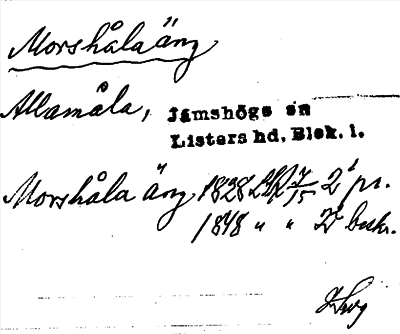 Morshåla äng
Allamåla, Jämshögs sn
Listers hd, Blek. l.
Morshåla äng 1828 7/15 2 pr.
1848 " " beskr.